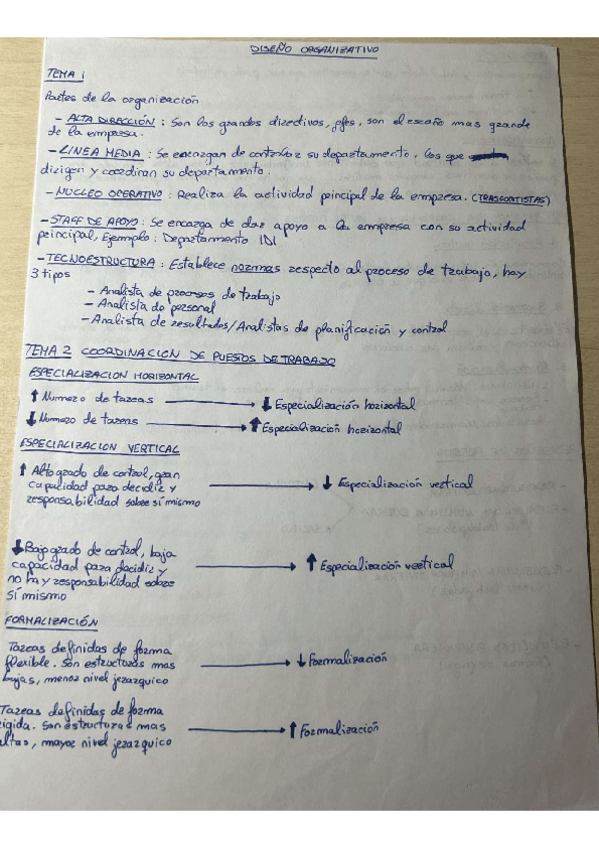 DISEÑO ORGANIZATIVO
TEMA 1
Partes de la organización
- ALTA DIRECCIÓN : Son los grandes directivos, jefes, son el escaño mas grande
de la empresa.
- LINEA MEDIA : Se encargan de controlar su departamento. Los que
dirigen y coordinan su departamento.
- NUCLEO OPERATIVO : Realiza la actividad principal de la empresa. (TRANSPORTISTAS)
- STAFF DE APOYO : Se encarga de dar apoyo a la empresa con su actividad
principal, Ejemplo : Departamento IDI
- TECNOESTRUCTURA : Establece normas respecto al proceso de trabajo, hay
3 tipos
- Analista de procesos de trabajo
- Analista de personal
- Analista de resultados/Analistas de planificación y control
TEMA 2 COORDINACION DE PUESTOS DE TRABAJO
ESPECIALIZACION HORIZONTAL
↑ Numero de tareas → ↓ Especialización horizontal
↓ Numero de tareas → ↑ Especialización horizontal
ESPECIALIZACION VERTICAL
↑ Alto grado de control, gran
capacidad para decidir y → ↓ Especialización vertical
responsabilidad sobre sí mismo
↓ Bajo grado de control, baja
capacidad para decidir y → ↑ Especialización vertical
no hay responsabilidad sobre
sí mismo
FORMALIZACIÓN
Tareas definidas de forma
flexible. Son estructuras mas → ↓ Formalización
bajas, menor nivel jerarquico
Tareas definidas de forma
rigida. Son estructuras mas → ↑ Formalización
altas, mayor nivel jerarquico